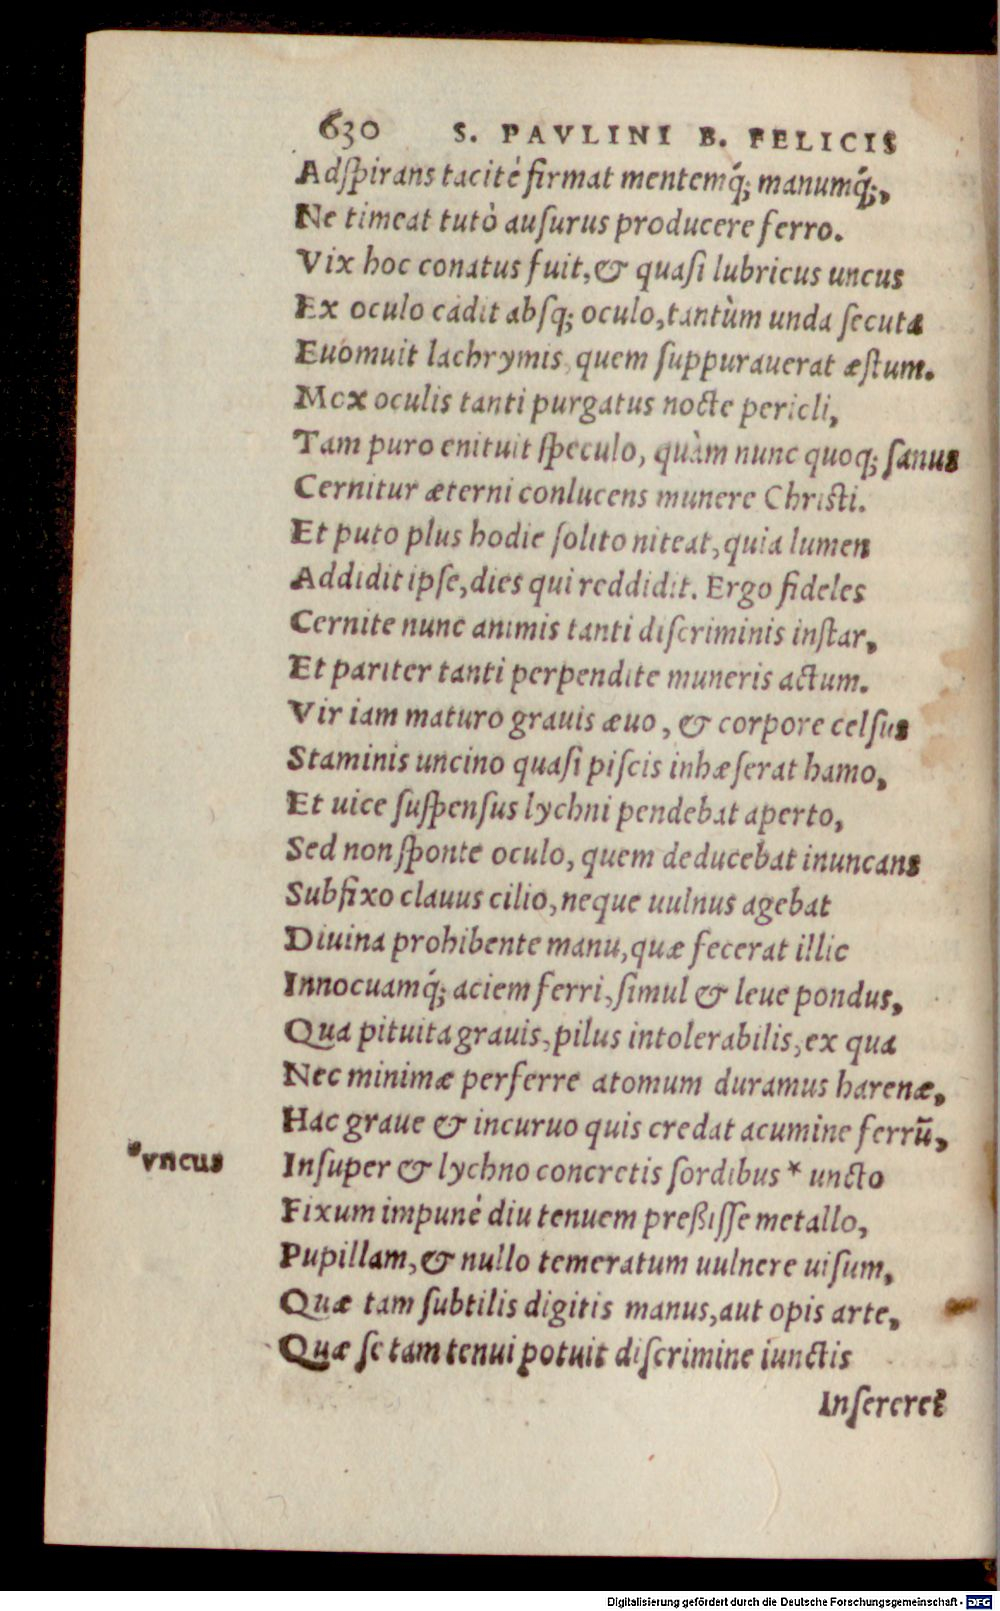 630 S. PAVLINI B. FELICIS
Adſpirans tacitè firmat mentemq́; manumq́;,
Ne timeat tutò auſurus producere ferro.
Vix hoc conatus fuit, & quaſi lubricus uncus
Ex oculo cadit abſq; oculo, tantùm unda ſecuta
Euomuit lachrymis, quem ſuppurauerat æſtum.
Mox oculis tanti purgatus nocte pericli,
Tam puro enituit ſpeculo, quàm nunc quoq; ſanus
Cernitur æterni conlucens munere Chriſti.
Et puto plus hodie ſolito niteat, quia lumen
Addidit ipſe, dies qui reddidit. Ergo fideles
Cernite nunc animis tanti diſcriminis inſtar,
Et pariter tanti perpendite muneris actum.
Vir iam maturo grauis æuo, & corpore celſus
Staminis uncino quaſi piſcis inhæſerat hamo,
Et uice ſuſpenſus lychni pendebat aperto,
Sed non ſponte oculo, quem deducebat inuncans
Subfixo clauus cilio, neque uulnus agebat
Diuina prohibente manu, quæ fecerat illic
Innocuamq́; aciem ferri, ſimul & leue pondus,
Qua pituita grauis, pilus intolerabilis, ex qua
Nec minimæ perferre atomum duramus harenæ,
Hac graue & incuruo quis credat acumine ferrū,
*vncus
Inſuper & lychno concretis ſordibus * uncto
Fixum impunè diu tenuem preßiſſe metallo,
Pupillam, & nullo temeratum uulnere uiſum,
Quæ tam ſubtilis digitis manus, aut opis arte,
Quæ ſe tam tenui potuit diſcrimine iunctis
Inſereret
Digitalisierung gefördert durch die Deutsche Forschungsgemeinschaft - DFG